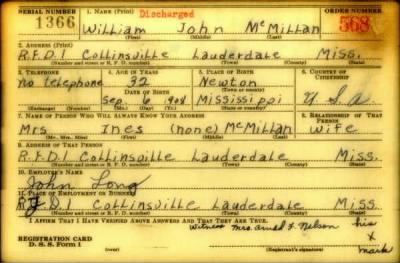 SERIAL NUMBER 1. NAME (Print) Discharged ORDER NUMBER
1366 William John McMillan 568
(First) (Middle) (Last)
2. ADDRESS (Print)
R.F.D.1 Collinsville Lauderdale Miss.
(Number and street or R. F. D. number) (Town) (County) (State)
3. TELEPHONE 4. AGE IN YEARS 5. PLACE OF BIRTH 6. COUNTRY OF CITIZENSHIP
No telephone 32 Newton
DATE OF BIRTH (Town or county)
Sep. 6 1908 Mississippi U.S.A.
(Exchange) (Number) (Mo.) (Day) (Yr.) (State or country)
7. NAME OF PERSON WHO WILL ALWAYS KNOW YOUR ADDRESS 8. RELATIONSHIP OF THAT PERSON
Mrs. Ines (none) McMillan wife
(Mr., Mrs., Miss) (First) (Middle) (Last)
9. ADDRESS OF THAT PERSON
R.F.D.1 Collinsville Lauderdale Miss.
(Number and street or R. F. D. number) (Town) (County) (State)
10. EMPLOYER'S NAME
John Long
11. PLACE OF EMPLOYMENT OR BUSINESS
R.F.D.1 Collinsville Lauderdale Miss
(Number and street or R. F. D. number) (Town) (County) (State)
I AFFIRM THAT I HAVE VERIFIED ABOVE ANSWERS AND THAT THEY ARE TRUE.
Witness Mrs. F. Nelson his
REGISTRATION CARD x
D. S. S. Form 1 (Registrant's signature) mark